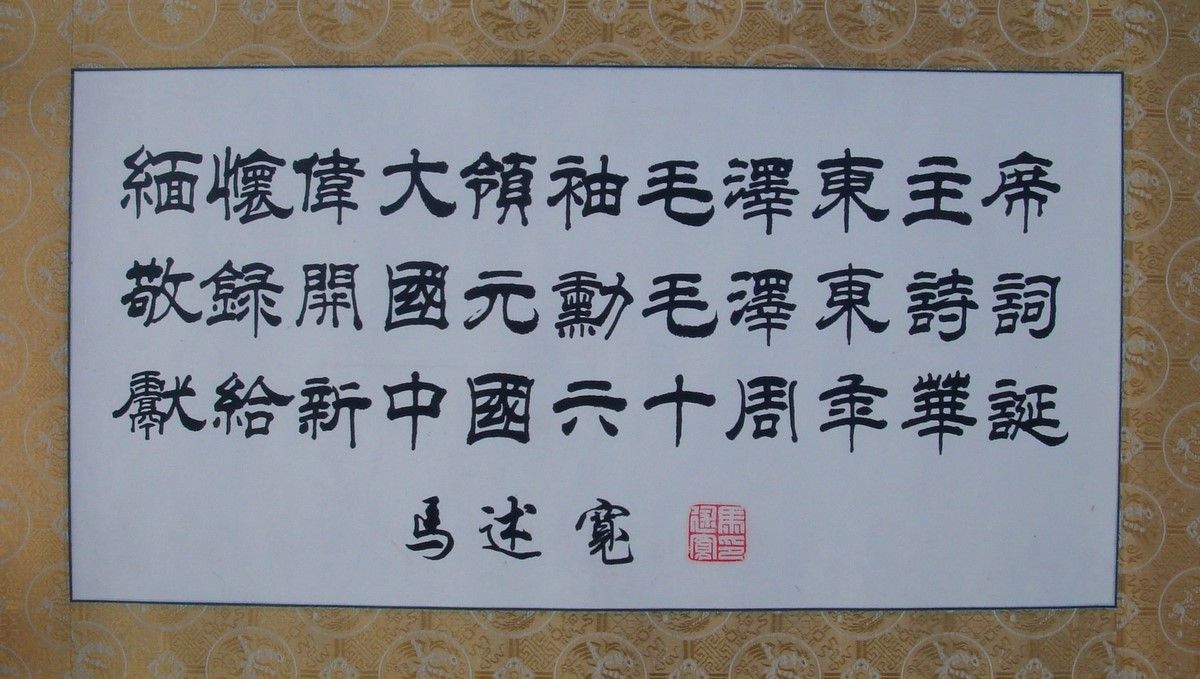 緬懷偉大領袖毛澤東主席
敬録開國元勳毛澤東詩詞
獻給新中國六十周年華誕
馬述寬
馬述寬印